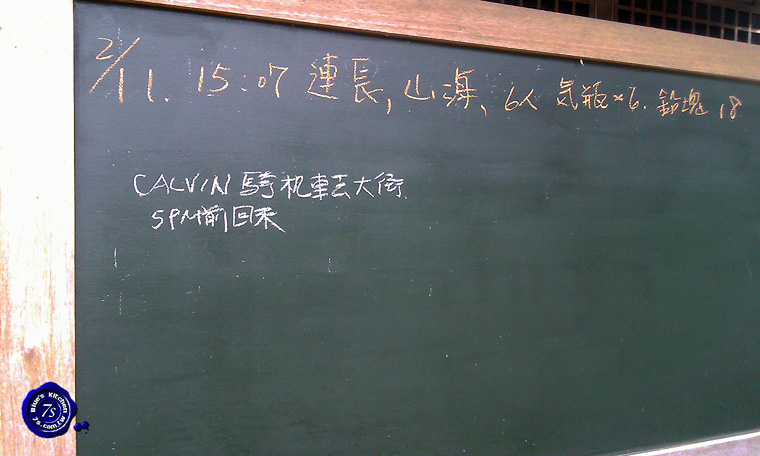 2/11. 15:07 連長, 山海、6人 気瓶×6. 鉛塊 18
CALVIN 騎机車去大街
5PM前回来
Blue's Kitchen
7s
7s.com.tw